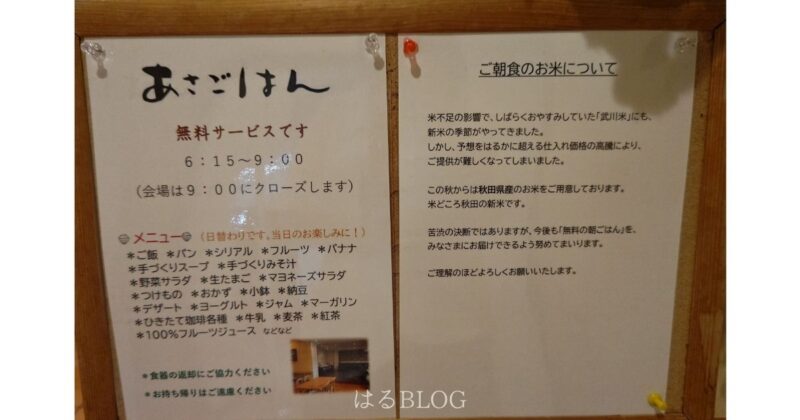 あさごはん
無料サービスです
6:15~9:00
(会場は9:00にクローズします)
メニュー (日替わりです、当日のお楽しみに!)
*ご飯 *パン *シリアル *フルーツ *バナナ
*手づくりスープ *手づくりみそ汁
*野菜サラダ *生たまご *マヨネーズサラダ
*つけもの *おかず *小鉢 *納豆
*デザート *ヨーグルト *ジャム *マーガリン
*ひきたて珈琲各種 *牛乳 *麦茶 *紅茶
*100%フルーツジュース などなど
*食器の返却にご協力ください
*お持ち帰りはご遠慮ください
ご朝食のお米について
米不足の影響で、しばらくおやすみしていた「武川米」にも、
新米の季節がやってきました。
しかし、予想をはるかに超える仕入れ価格の高騰により、
ご提供が難しくなってしまいました。
この秋からは秋田県産のお米をご用意しております。
米どころ秋田の新米です。
苦渋の決断ではありますが、今後も「無料の朝ごはん」を、
みなさまにお届けできるよう努めてまいります。
ご理解のほどよろしくお願いいたします。
はるBLOG